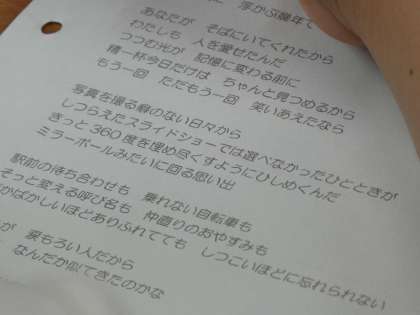 浮かぶ幾年で
あなたが そばにいてくれたから
わたしも 人を愛せたんだ
つつむ光が 記憶に変わる前に
精一杯今日だけは ちゃんと見つめるから
もう一回 ただもう一回 笑いあえたなら
写真を撮る癖のない日々から
しつらえたスライドショーでは選べなかったひとときが
きっと360度を埋め尽くすようにひしめくんだ
ミラーボールみたいに回る思い出
駅前の待ち合わせも 乗れない自転車も
そっと変える呼び名も 仲直りのおやすみも
かばかしいほどありふれてても しつこいほどに忘れられない
が 涙もろい人だから
なんだか似てきたのかな